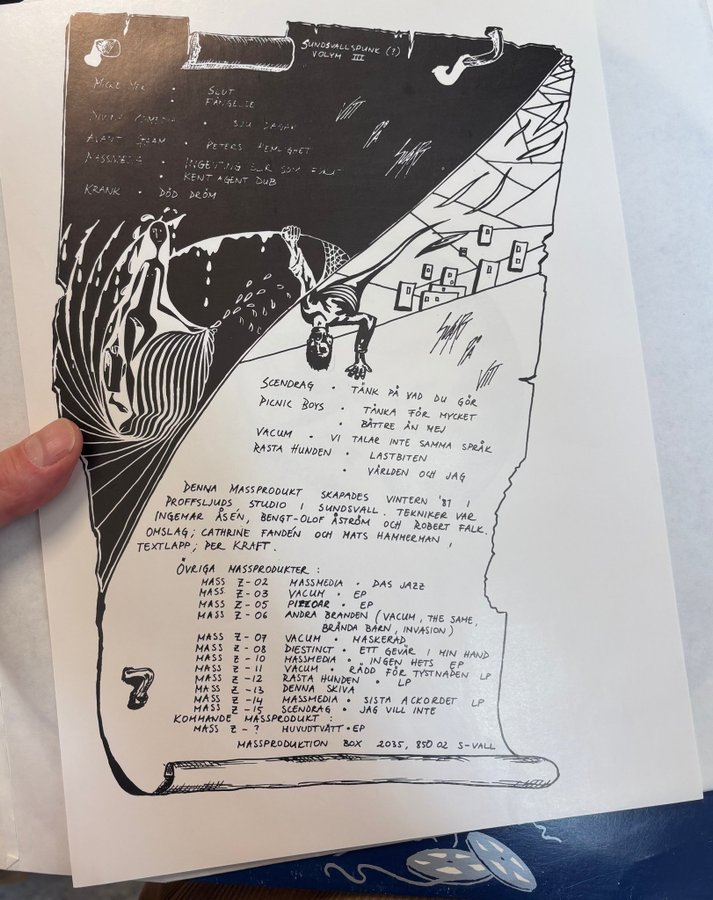 SUNDSVALLSPUNK (?)
VOLYM III
SLUT
FÄNGELSE
DIVINE · SJU DAGAR
AVANT · PETERS HEMLIGHET
MASSMEDIA · INGENTING BLIR SOM FÖRUT
· KENT AGENT DUB
KRANK · DÖD DRÖM
VITT
PÅ
SVART
SVART
PÅ
VITT
SCENDRAG · TÄNK PÅ VAD DU GÖR
PICNIC BOYS · TÄNKA FÖR MYCKET
· BÄTTRE ÄN NEJ
VACUM · VI TALAR INTE SAMMA SPRÅK
RASTA HUNDEN · LASTBITEN
· VÄRLDEN OCH JAG
DENNA MASSPRODUKT SKAPADES VINTERN '81 I
PROFFSLJUDS STUDIO I SUNDSVALL. TEKNIKER VAR
INGEMAR ÅSÉN, BENGT-OLOF ÅSTRÖM OCH ROBERT FALK.
OMSLAG; CATHRINE FANDÉN OCH MATS HAMMERMAN,
TEXTLAPP; PER KRAFT.
ÖVRIGA MASSPRODUKTER:
MASS Z-02 MASSMEDIA · DAS JAZZ
MASS Z-03 VACUM · EP
MASS Z-05 PIZZOAR · EP
MASS Z-06 ANDRA BRANDEN (VACUM, THE SAME,
BRÄNDA BARN, INVASION)
MASS Z-07 VACUM · MASKERAD
MASS Z-08 DIESTINCT · ETT GEVÄR I MIN HAND
MASS Z-10 MASSMEDIA · INGEN HETS EP
MASS Z-11 VACUM · RÄDD FÖR TYSTNADEN LP
MASS Z-12 RASTA HUNDEN · LP
MASS Z-13 DENNA SKIVA
MASS Z-14 MASSMEDIA · SISTA ACKORDET LP
MASS Z-15 SCENDRAG · JAG VILL INTE
KOMMANDE MASSPRODUKT:
MASS Z-? HUVUDTVÄTT · EP
MASSPRODUKTION BOX 2035, 850 02 S-VALL